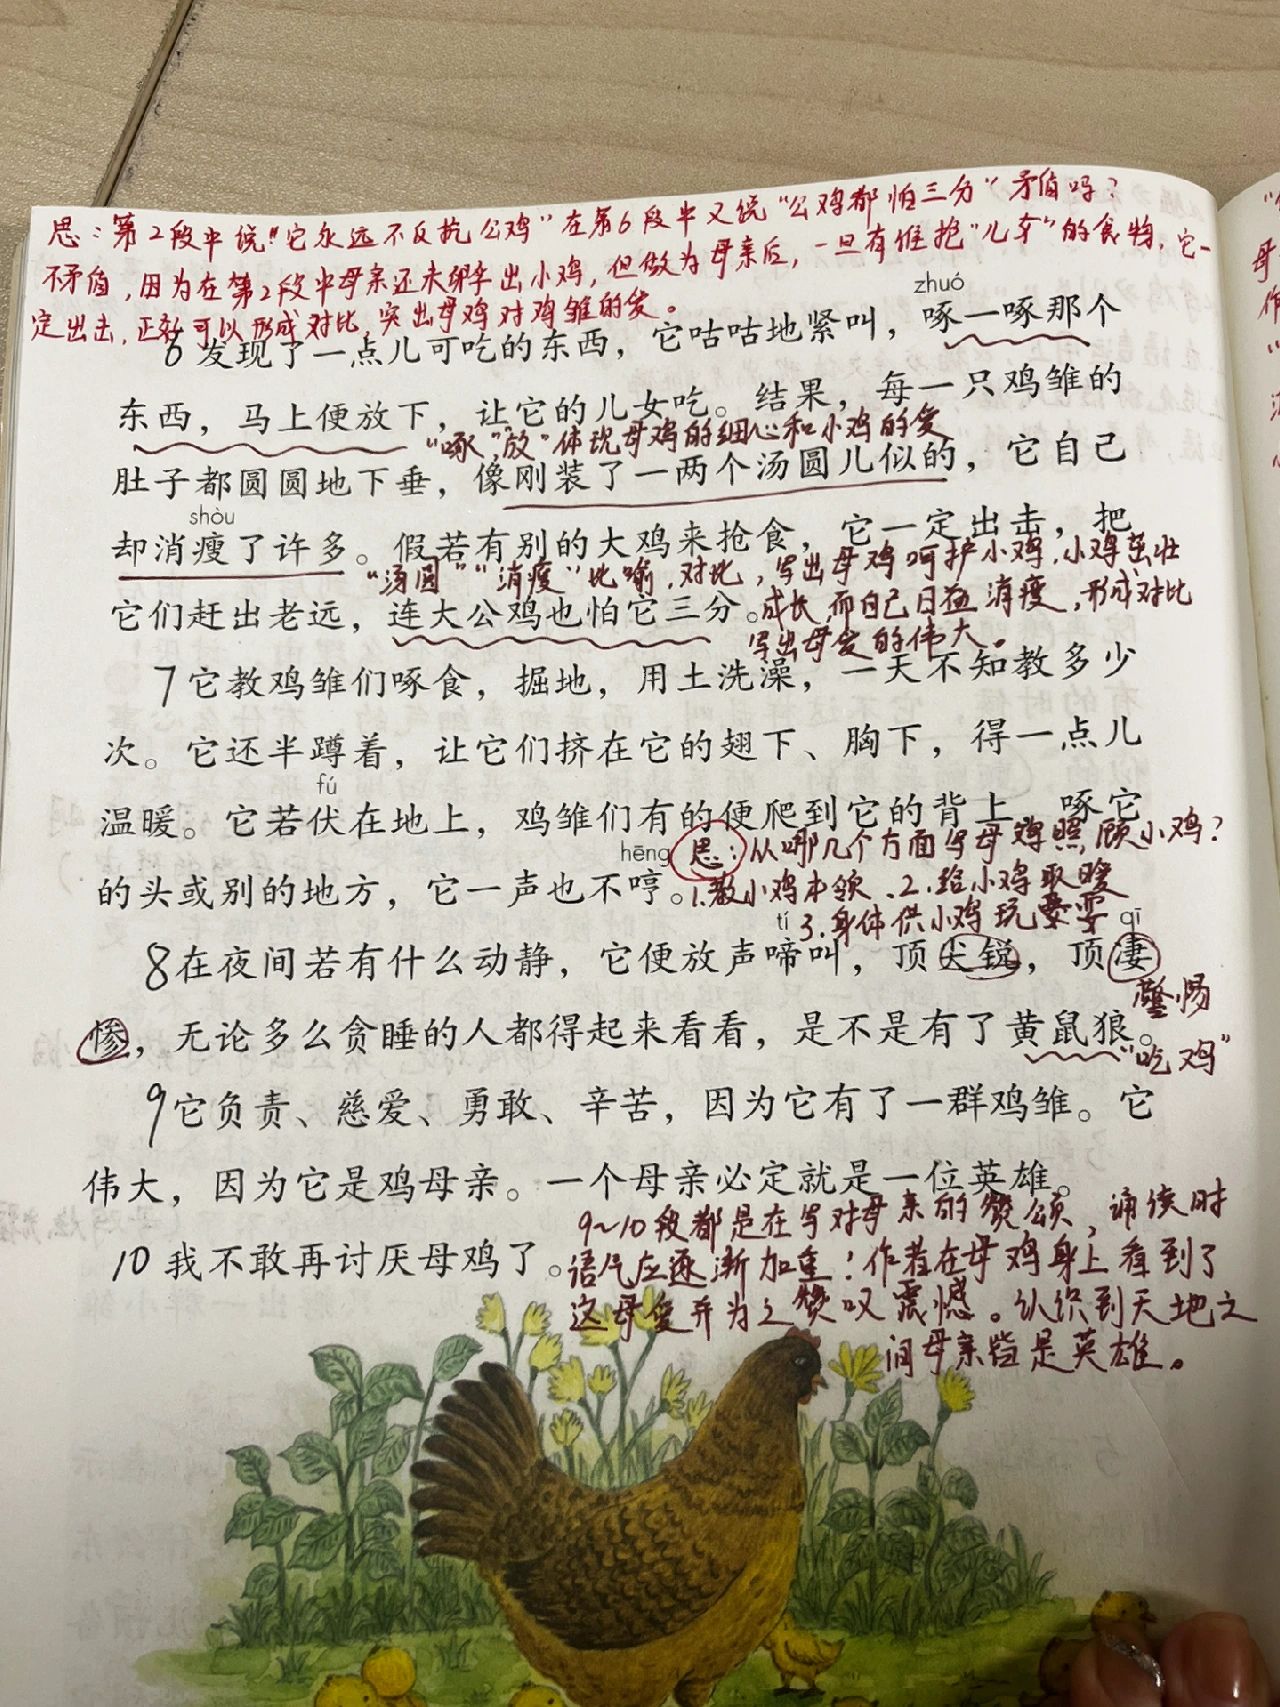 思：第2段中说"它永远不反抗公鸡"在第6段中又说"公鸡都怕三分"矛盾吗？
不矛盾，因为在第2段中母亲还未孵出小鸡，但做为母亲后，一旦有谁抢"儿女"的食物，它一
定出击，正好可以形成对比，突出母鸡对鸡雏的爱。
zhuó
6发现了一点儿可吃的东西，它咕咕地紧叫，啄一啄那个
东西，马上便放下，让它的儿女吃。结果，每一只鸡雏的
"啄""放"体现母鸡的细心和小鸡的爱
肚子都圆圆地下垂，像刚装了一两个汤圆儿似的，它自己
shòu
却消瘦了许多。假若有别的大鸡来抢食，它一定出击，把
"汤圆""消瘦"比喻，对比，写出母鸡呵护小鸡，小鸡茁壮
它们赶出老远，连大公鸡也怕它三分。
成长，而自己日益消瘦，形成对比
写出母爱的伟大。
7它教鸡雏们啄食，掘地，用土洗澡，一天不知教多少
次。它还半蹲着，让它们挤在它的翅下、胸下，得一点儿
fú
温暖。它若伏在地上，鸡雏们有的便爬到它的背上，啄它
hēng
思：从哪几个方面写母鸡照顾小鸡？
的头或别的地方，它一声也不哼。
1.教小鸡本领、2.给小鸡取暖
3.身体供小鸡玩耍
tí qī
8在夜间若有什么动静，它便放声啼叫，顶尖锐，顶凄
警惕
惨，无论多么贪睡的人都得起来看看，是不是有了黄鼠狼。
"吃鸡"
9它负责、慈爱、勇敢、辛苦，因为它有了一群鸡雏。它
伟大，因为它是鸡母亲。一个母亲必定就是一位英雄。
9~10段都是在写对母亲的赞颂，诵读时
10我不敢再讨厌母鸡了。
语气应逐渐加重！作者在母鸡身上看到了
这母爱并为之赞叹震憾。认识到天地之
间母亲皆是英雄。